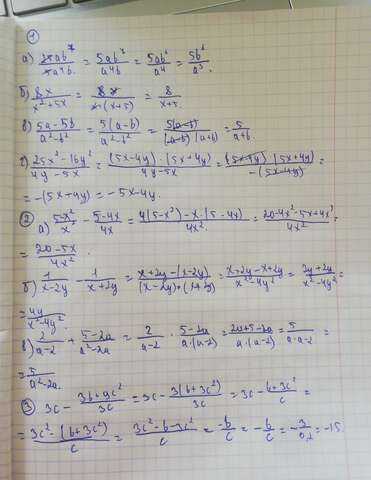 1
а) 25ab³/5a⁴b = 5ab³/a⁴b = 5ab²/a⁴ = 5b²/a³.
б) 8x/x²+5x = 8x/x(x+5) = 8/x+5
в) 5a-5b/a²-b² = 5(a-b)/a²-b² = 5(a-b)/(a-b)(a+b) = 5/a+b.
г) 25x²-16y²/4y-5x = (5x-4y)·(5x+4y)/4y-5x = (5x-4y)(5x+4y)/-(5x-4y) =
= -(5x+4y) = -5x-4y.
2
а) 5-x²/x - 5-4x/4x = 4(5-x²)-x·(5-4x)/4x² = 20-4x²-5x+4x²/4x² =
= 20-5x/4x².
б) 1/x-2y - 1/x+2y = x+2y-(x-2y)/(x-2y)·(x+2y) = x+2y-x+2y/x²-4y² = 2y+2y/x²-4y² =
= 4y/x²-4y².
в) 2/a-2 + 5-2a/a²-2a = 2/a-2 · 5-2a/a·(a-2) = 2a+5-2a/a·(a-2) = 5/a·a-2 =
= 5/a²-2a.
3 3c - 3b+9c²/3c = 3c - 3(b+3c²)/3c = 3c - b+3c²/c =
= 3c²-(b+3c²)/c = 3c²-b-3c²/c = -b/c = -b/c = -3/0,2 = -15.